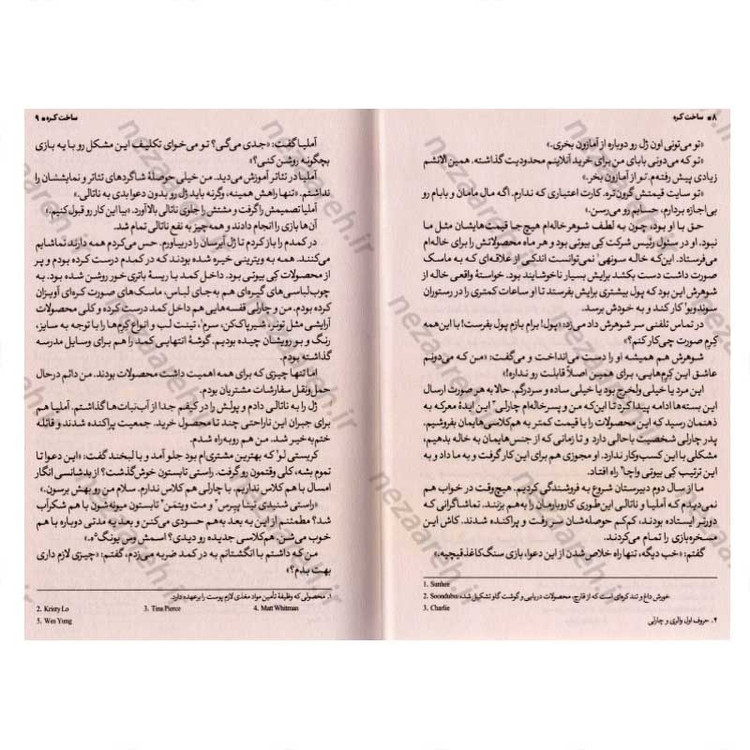 ۸ ■ ساخت کره
«تو می‌تونی اون ژل رو دوباره از آمازون بخری.»
«تو که می‌دونی بابای من برای خرید آنلاینم محدودیت گذاشته. همین الانشم
زیادی پیش رفته‌م. تو از آمازون بخر.»
«تو سایت قیمتش گرون‌تره. کارت اعتباری که ندارم. اگه مال مامان و بابام رو
بی‌اجازه بردارم، حسابم رو می‌رسن.»
حق با او بود، چون به لطف شوهرخاله‌ام هیچ‌جا قیمت‌هایشان مثل ما
نبود. او در سئول رئیس شرکت کِی بیوتی بود و هر ماه محصولاتش را برای خاله‌ام
می‌فرستاد. این‌که خاله سونهی۱ نمی‌توانست اندکی از علاقه‌ای که به ماسک
صورت داشت دست بکشد برایش بسیار ناخوشایند بود. خواستهٔ واقعی خاله از
شوهرش این بود که پول بیشتری برایش بفرستد تا او ساعات کمتری را در رستوران
سوندوبو۲ کار کند و به خودش برسد.
در تماس تلفنی سر شوهرش داد می‌زد: «پول! برام بازم پول بفرست! با این‌همه
کِرِم صورت چی‌کار کنم؟»
شوهرش هم همیشه او را دست می‌انداخت و می‌گفت: «من که می‌دونم
عاشق این کِرِم‌هایی، برای همین اصلاً قابلت رو نداره!»
این مرد یا خیلی ولخرج بود یا خیلی ساده و سردرگم. حالا به هر صورت ارسال
این بسته‌ها ادامه پیدا کرد تا این‌که من و پسرخاله‌ام چارلی۳ این ایدهٔ معرکه به
ذهنمان رسید که این محصولات را با قیمت کمتر به هم‌کلاسی‌هایمان بفروشیم.
پدر چارلی شخصیت باحالی دارد و تا زمانی که از جنس‌هایمان به خاله بدهیم،
مشکلی با این کسب‌وکار ندارد. او مجوزی هم برای این کار گرفت و به ما داد و به
این ترتیب کِی بیوتی وَاچا۴ راه افتاد.
ما از سال دوم دبیرستان شروع به فروشندگی کردیم. هیچ‌وقت در خواب هم
نمی‌دیدم که آملیا و ناتالی این‌طوری کاروبارمان را به‌هم بزنند. تماشاگرانی که
دورتر ایستاده بودند، کم‌کم حوصله‌شان سر رفت و پراکنده شدند. کاش این
مسخره‌بازی را تمام می‌کردند.
گفتم: «خب دیگه، تنها راه خلاص شدن از این دعوا، بازی سنگ‌کاغذقیچیه.»
1. Sunhee
2. Soondubu: خورش داغ و تند کره‌ای است که از قارچ، محصولات دریایی و گوشت گاو تشکیل شده
3. Charlie
۴. حروف اول والری و چارلی
ساخت کره ■ ۹
آملیا گفت: «جدی می‌گی؟ تو می‌خوای تکلیف این مشکل رو با یه بازی
بچگونه روشن کنی؟»
آملیا در تئاتر آموزش می‌دید. من خیلی حوصلهٔ شاگردهای تئاتر و نمایششان را
نداشتم. «تنها راهش همینه، وگرنه باید ژل رو بدون دعوا بدی به ناتالی.»
آملیا تصمیمش را گرفت و مشتش را جلوی ناتالی بالا آورد. «بیا این کار رو قبول کنیم.»
آن‌ها بازی را انجام دادند و همه‌چیز به نفع ناتالی تمام شد.
در کمدم را باز کردم تا ژل آبرسان را دربیاورم. حس می‌کردم همه دارند تماشایم
می‌کنند. همه به ویترینی خیره شده بودند که در کمدم درست کرده بودم و پر
از محصولات کِی بیوتی بود. داخل کمد با ریسهٔ باتری‌خور روشن شده بود. به
چوب‌لباسی‌های گیره‌ای هم به‌جای لباس، ماسک‌های صورت کره‌ای آویزان
کرده بودم. من و چارلی قفسه‌هایی هم داخل کمد درست کرده و کلی محصولات
آرایشی مثل تونر، شیرپاک‌کن، سرم۱، تینت لب و انواع کِرِم‌ها را با توجه به سایز،
رنگ و بو رویشان چیده بودیم. گوشهٔ انتهایی کمد را هم برای وسایل مدرسه
گذاشته بودم.
اما تنها چیزی که برای همه اهمیت داشت محصولات بودند. من دائم درحال
حمل‌ونقل سفارشات مشتریان بودم.
ژل را به ناتالی دادم و پولش را در کیفم جدا از آب‌نبات‌ها گذاشتم. آملیا هم
برای جبران این ناراحتی چند تا محصول خرید. جمعیت پراکنده شدند و قائله
ختم‌به‌خیر شد. من هم روبه‌راه شدم.
کریستی لو۲ که بهترین مشتری‌ام بود جلو آمد و با لبخند گفت: «این دعوا تا
تموم بشه، کلی وقتمون رو گرفت. راستی تابستون خوش گذشت؟ از بدشانسی انگار
امسال با هم کلاس نداریم. با چارلی هم کلاس ندارم. سلام من رو بهش برسون.»
«راستی شنیدی تینا پیِرس۳ و مت ویتمن۴ تابستون میونه‌شون با هم شکرآب
شد؟ مطمئنم از این به بعد به‌هم حسودی می‌کنن و بعد یه مدتی دوباره با هم
خوب می‌شن. هم‌کلاسی جدیده رو دیدی؟ اسمش وِس یونگ۵ه.»
من که داشتم با انگشتانم به در کمد ضربه می‌زدم، گفتم: «چیزی لازم داری
بهت بدم؟»
۱. محصولی که وظیفهٔ تأمین مواد مغذی لازم پوست را برعهده دارد.
2. Kristy Lo 3. Tina Pierce 4. Matt Whitman
5. Wes Yung
nezaareh.ir